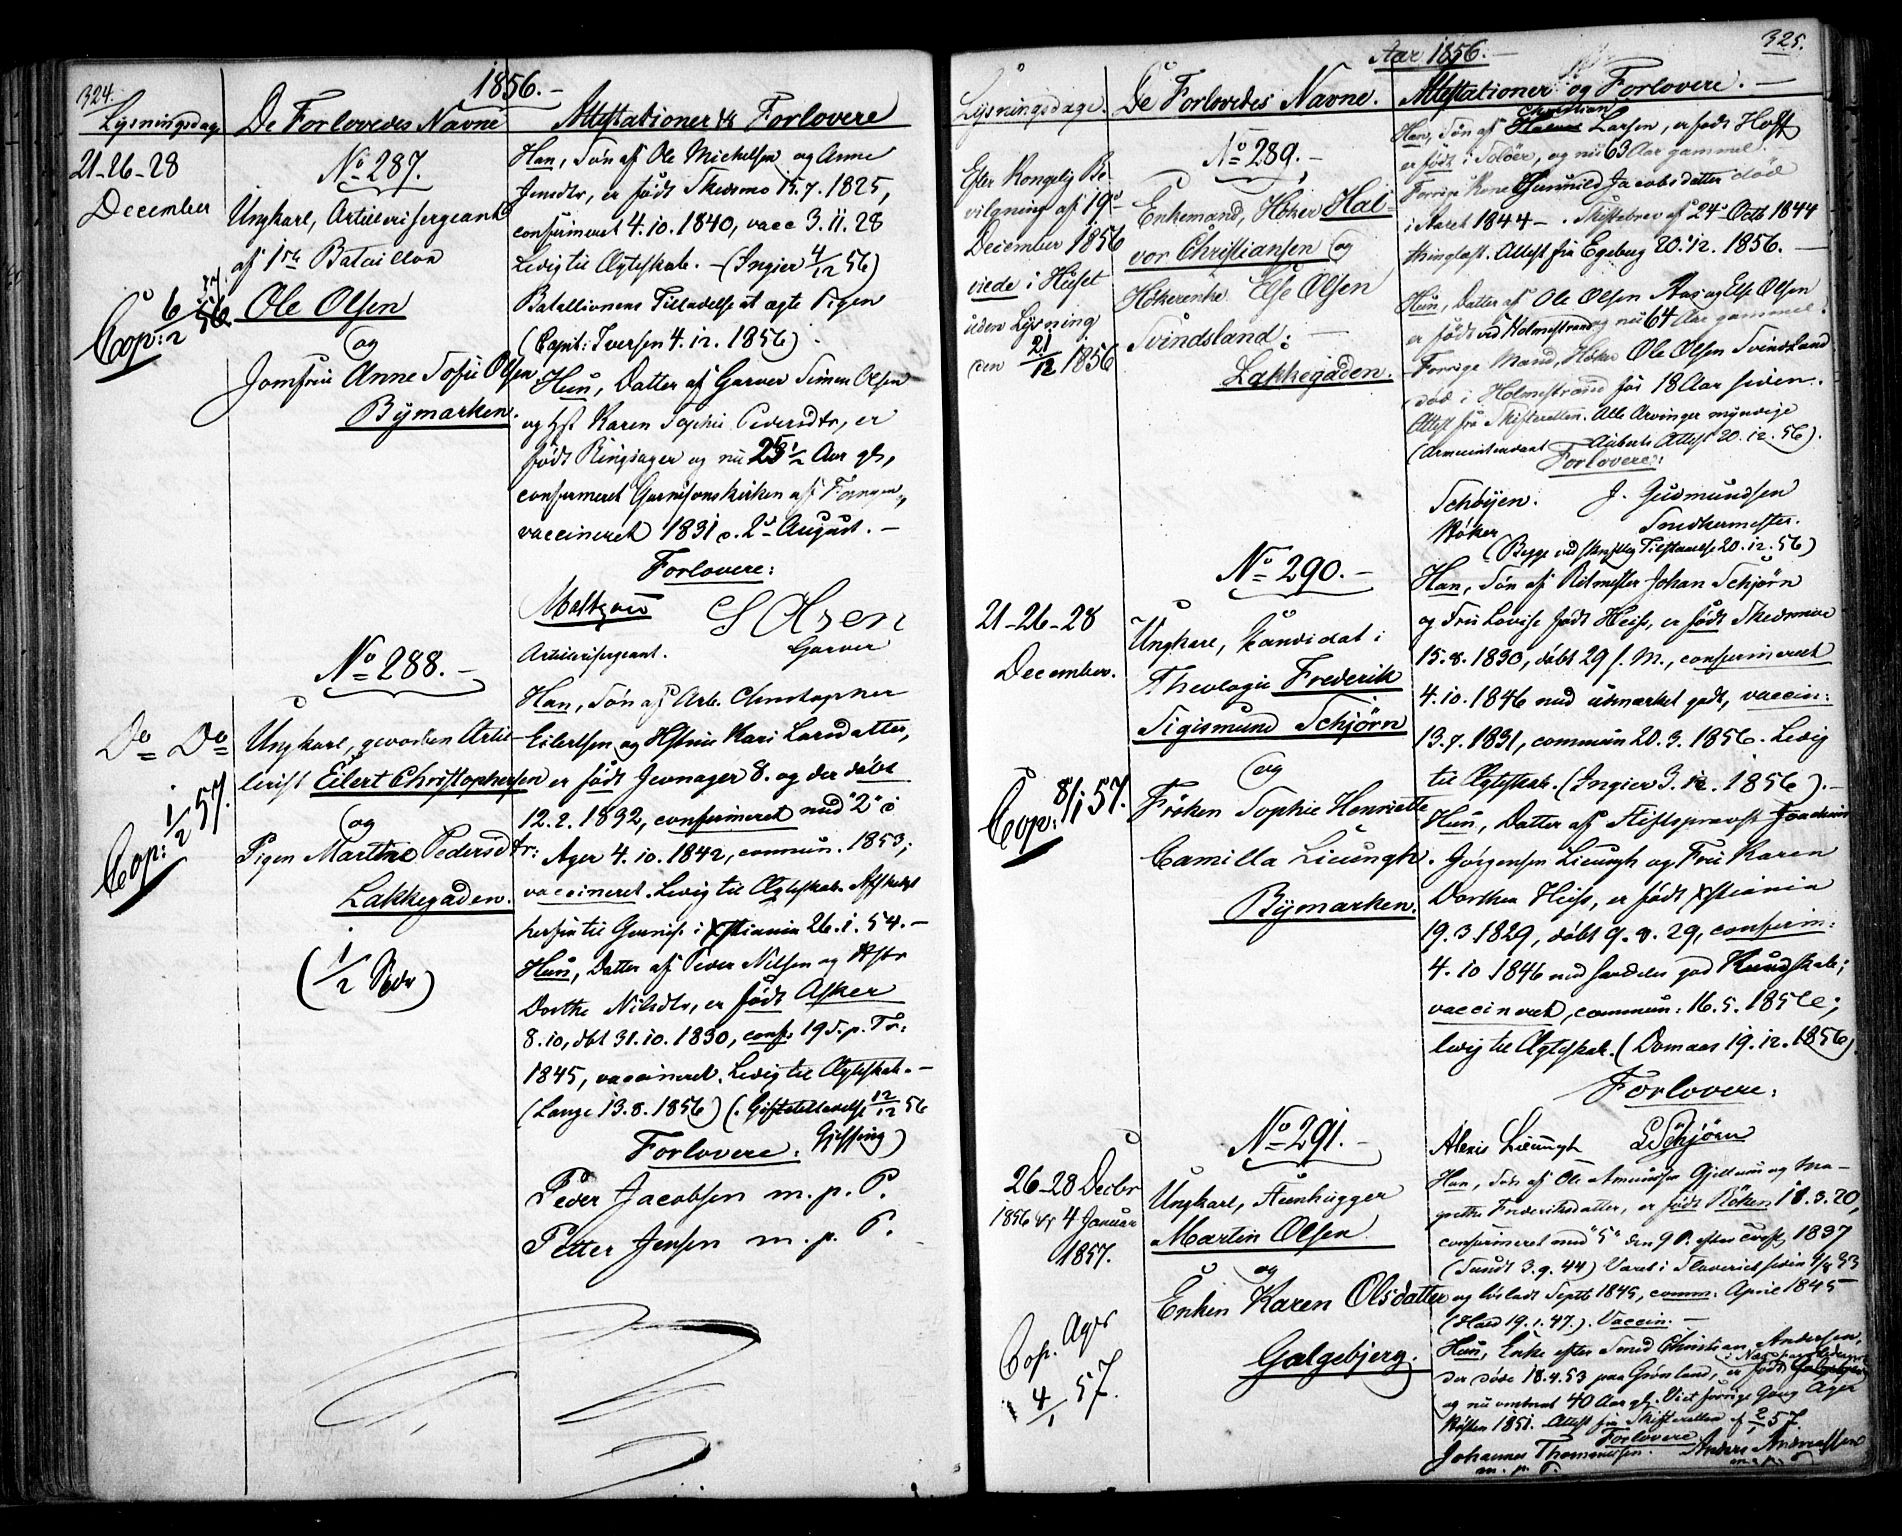 324.
1856.-
Lysningsdag.
De Forlovedes Navne
Attestationer & Forlovere
21-26-28
December
No 287.
Ungkarl, Artillerisergeant
af 1ste Bataillon
Ole Olsen
og
Jomfrue Anne Sofie Olsen
Bymarken.
Cop: 6/2 56.
Han, Søn af Ole Michelsen og Anne
Jensdtr, er født Skedsmo 15.7.1825,
confirmeret 4.10.1840, vacc 3.11.28
Ledig til Ægteskab. - (Ingier 4/12 56)
Batellionens Tilladelse at ægte Pigen
(Capit: Iversen 4.12.1856).
Hun, Datter af Garver Simen Olsen
og Hst Karen Sophie Pedersdtr, er
født Ringsager og nu 25 1/2 Aar gl,
confirmeret Garnisonskirken af
vaccineret 1831 d. 2d August. -
Forlovere:
S Olsen
Artillerisergeant.
Garver
No 288.-
Do Do
Ungkarl, gevorben Artil-
lerist Eilert Christophersen
og
Pigen Marthe Pedersdtr:
Lakkegaden.
(1/2 )
Cop: 1/2 57.
Han, Søn af Arb. Christopher
Eilertsen og Hstrue Kari Larsdatter,
er født Jevnager 8. og der døbt
12.2.1832, confirmeret med "2" i
Ager 4.10.1842, commun. 1853;
vaccineret. Ledig til Ægteskab Afskeds
herfra til Garnis. i Xstiania 26.1.54.-
Hun, Datter af Peder Nilsen og Hstr
Dorthe Nilsdtr, er født Asker
8.10, dbt 31.10.1830, conf: 19 S. p. Tr:
1845, vaccineret. Ledig til Ægteskab.-
(Lange 13.8.1856) (. Giftetilladelse 12/12 56
Gjessing)
Forlovere.
Peder Jacobsen m. p. P.
Petter Jensen m. p. P.
325.
Aar 1856.-
Lysningsdage.
De Forlovedes Navne.
Attestationer og Forlovere.-
Efter Kongelig Be-
vilgning af 19de
December 1856
viede i Huset
uden Lysning
den 21/12 1856
No 289.-
Enkemand, Høker Hal-
vor Christiansen og
Høkerenke Else Olsen
Svindsland:-
Lakkegaden.
Christian
Han, Søn af Larsen, er født Hoff
er født i Soløer, og nu 63 Aar gammel.
Forrige Kone Gunnild Jacobsdatter død
i Aaret 1844 -. Skiftebrev af 24de Octb 1844
thinglæst. Attest fra Egeberg 20.12.1856.-
Hun, Datter af Ole Olsen Aas og Else Olsen
er født ved Holmestrand og nu 64 Aar gammel.
Forrige Mand, Høker Ole Olsen Svindsland
død i Holmestrand for 18 Aar siden.
Attest fra Skifteretten. Alle Arvinger myndige
(Armeeintendant Auberts Attest 20.12.56).
Forlovere:
Schøyen.
J. Gudmundsen
Høker
Snedkermester.
(Begge ved skriftlig Tilstaaelse 20.12.56)
21-26-28
December.
No 290.-
Ungkarl, Kandidat i
Theologie Frederik
Sigismund Schjørn
og
Frøken Sophie Henriette
Camilla Lieungh.
Bymarken.
Cop: 8/1 57.
Han, Søn af Ritmester Johan Schjörn
og Fru Lovise født Heiss, er født Skedsmoe
15.8.1830, døbt 29 s. M., confirmeret
4.10.1846 med udmærket godt, vaccin:
13.7.1831, commun 20.3.1856. Ledig
til Ægteskab. (Ingier 3.12.1856).-
Hun, Datter af Stiftsprovst Joachim
Jørgensen Lieungh og Fru Karen
Dorthea Heiss, er født Xstiania
19.3.1829, døbt 9.8.29, confirm:
4.10 1846 med særdeles god Kundskab;
vaccineret, commun: 16.5.1856;
ledig til Ægteskab. (Domaas 19.12.1856).
Forlovere:
Alexis Lieungh
L Schjørn
26-28 Decbr
1856 & 4 Januar
1857.
No 291.-
Ungkarl, Steenhugger
Martin Olsen
og
Enken Karen Olsdatter
Galgebjerg.
Cop. Ager
4/1 57.
Han, Søn af Ole Amundsen Gjellum og Ma-
grethe Frederiksdatter, er født Røken 18.3.20,
confirmeret med "5" den 9 P. efter 1837
(Sundt 3.9.44) Været i Slaveriet siden
og løsladt Septb 1845, comm: April 1845
(Hald 19.1.47). Vaccin:-
Hun, Enke efter Smed Christian Andersen,
der døde 18.4.53 paa Grønland, er født
og nu omtrent 40 Aar gl. Viet forrige Gang Ager
Høsten 1851. Attest fra Skifteretten af 2/1 57
Forlovere
Johannes Thomessen.
Anders Andreassen
m. p. P.
m. p. P